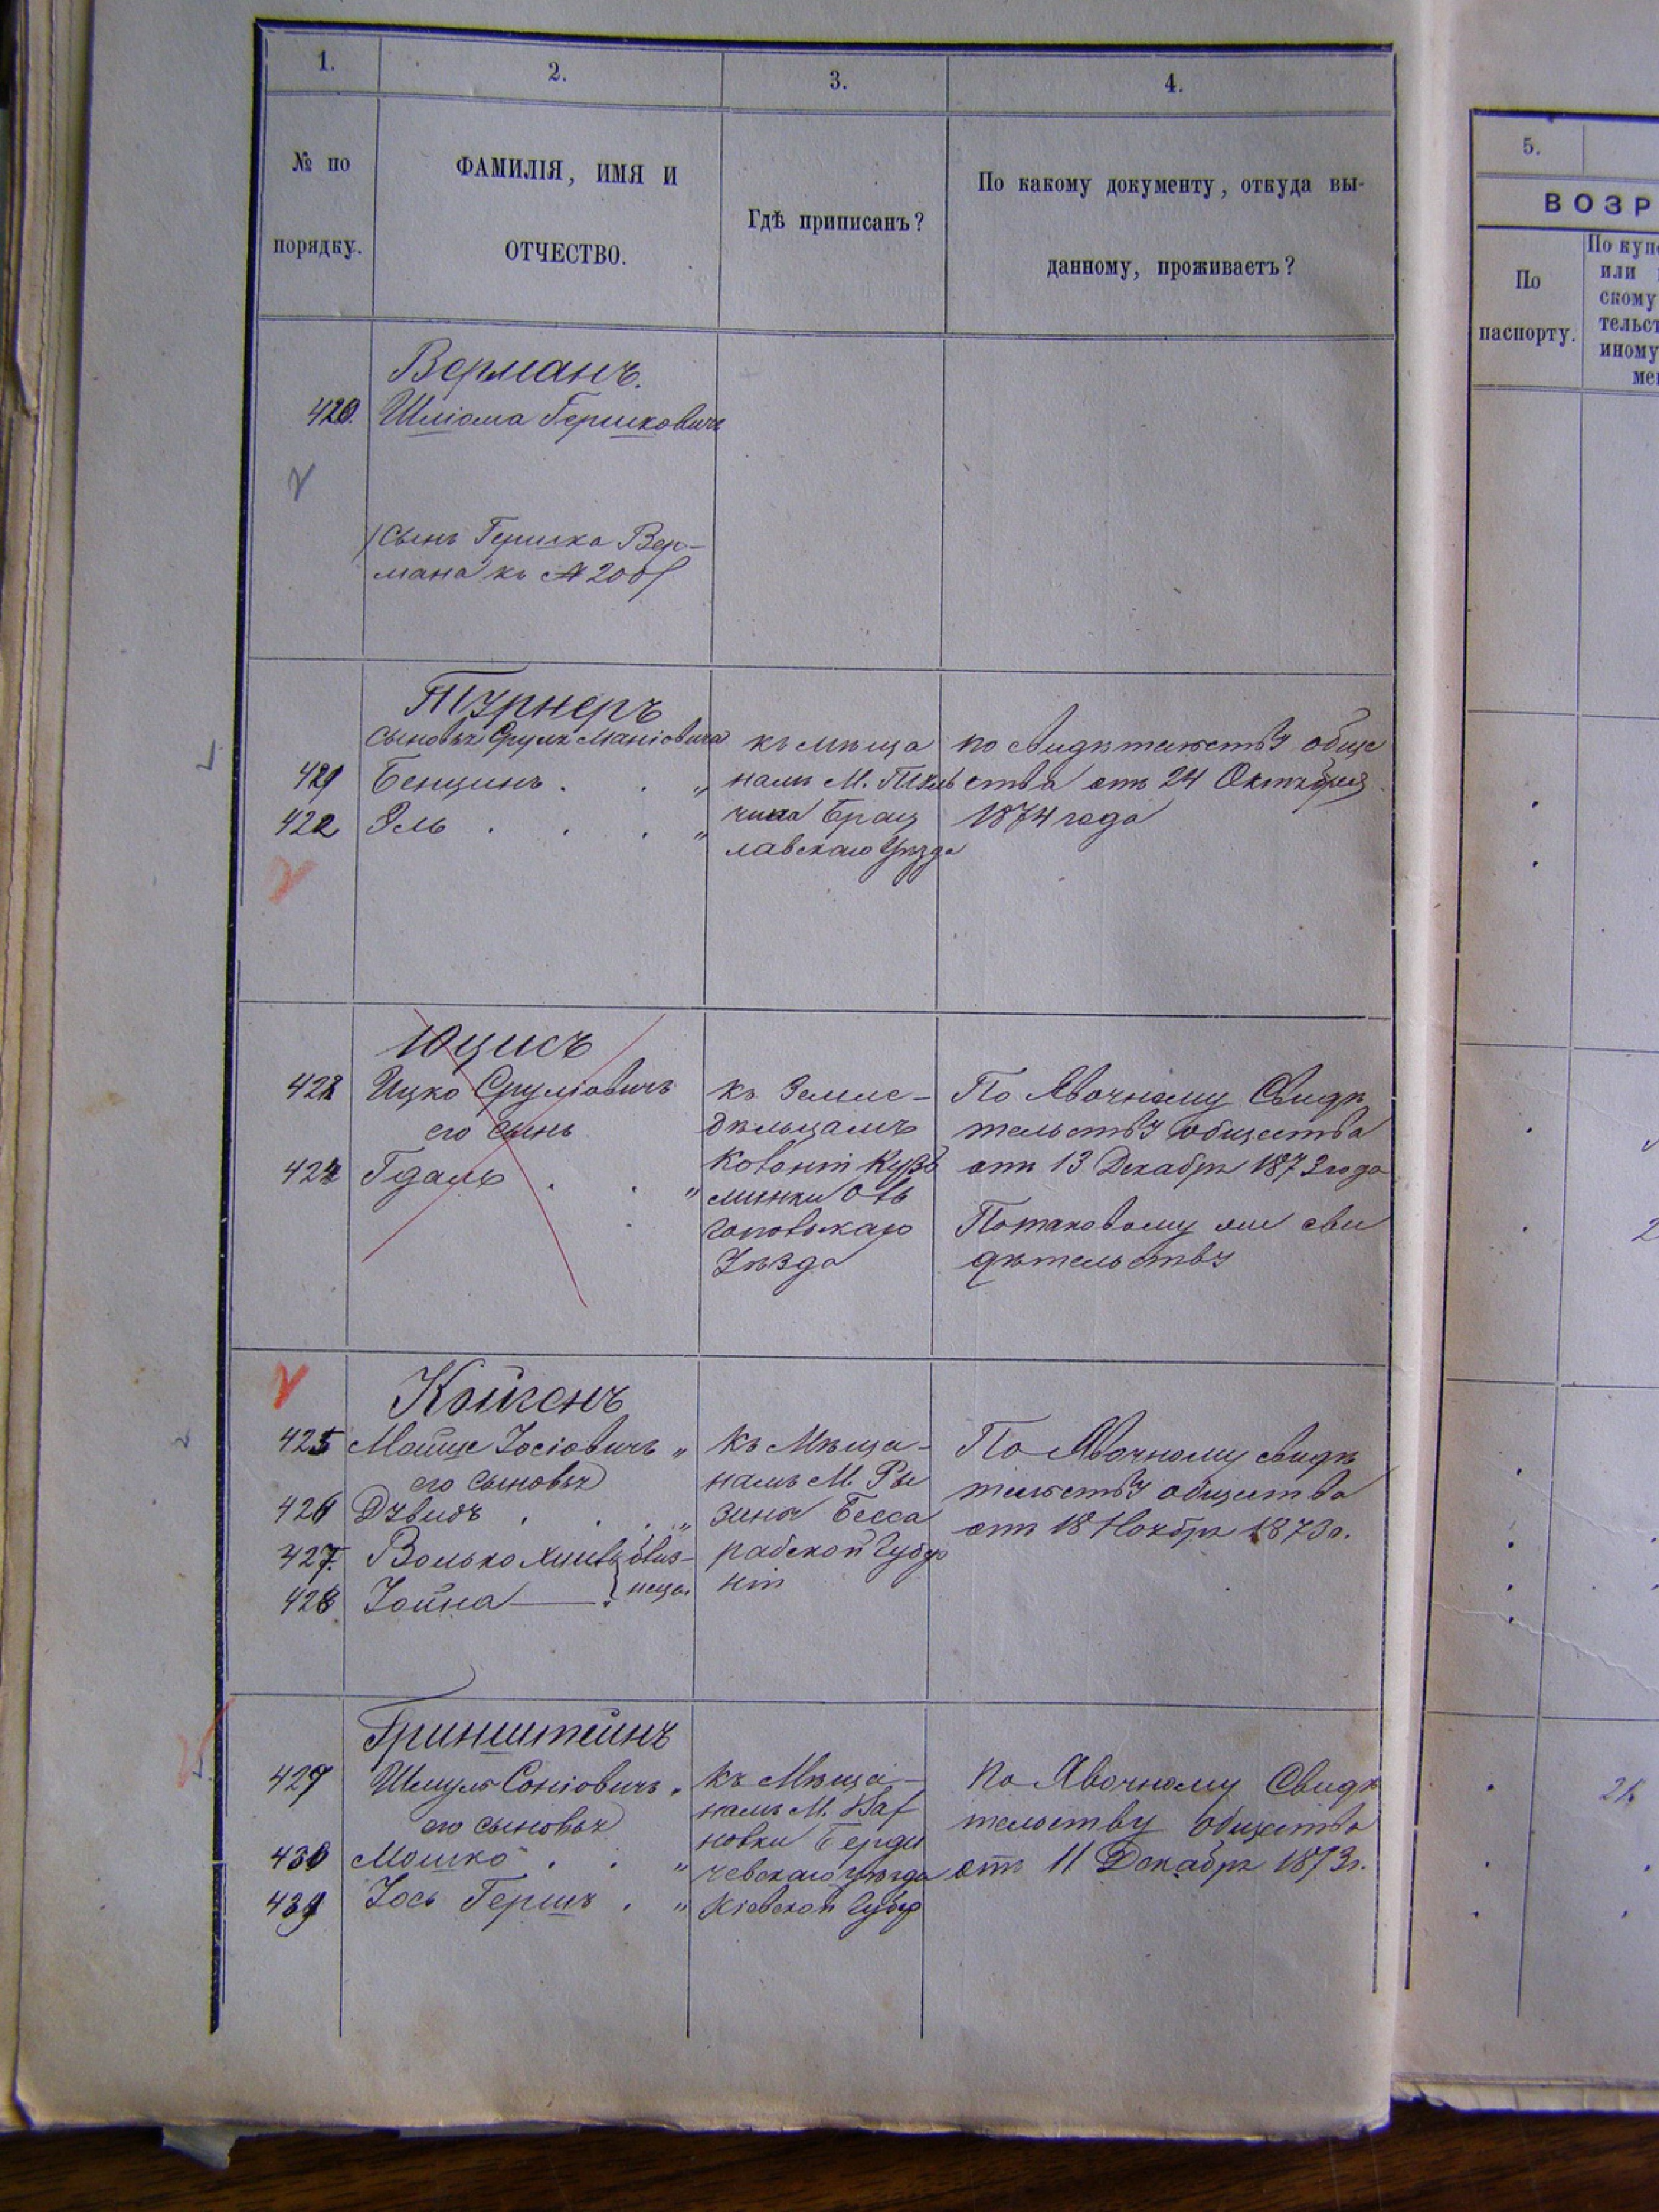 1.
2.
3.
4.
№ по
порядку.
ФАМИЛІЯ, ИМЯ И
ОТЧЕСТВО.
Гдѣ приписанъ?
По какому документу, откуда вы-
данному, проживаетъ?
Верманъ.
420. Шліома Гершковичъ
сынъ Гершка Вер-
мана къ № 200
Турнеръ
сыновья Сруля Маніовича
421 Бенционъ . . „
422 Эль . . . „
къ мѣща
намъ М.
Брац
лавскаго Уѣзда
по свидѣтельству обще
ства отъ 24 Октября
1874 года
Юцисъ
423 Ицко Сруліовичъ
его сынъ
424 Гдаль . . „
къ Земле-
дѣльцамъ
Колоніи Кузь
минки
Уѣзда
По Явочному Свидѣ
тельству общества
отъ 13 Декабря 1873 года
Потаковому же сви
дѣтельству
Койгенъ
425 Мойше Іосіовичъ „
его сыновья
426 Дувидъ . . . „
427. Волько близ-
428 Іойна — . неца.
къ Мѣща-
намъ М. Ре
зина Бесса
рабской Губер
ніи
По Явочному свидѣ
тельству общества
отъ 18 Ноября 1873 г.
Гринштейнъ
429 Шмуль Соніовичъ „
его сыновья
430 Мошко . . „
431 Іось Гершъ . „
къ Мѣща-
намъ М.
новки Берди
чевскаго уѣзда
Кіевской Губер
по Явочному Свидѣ
тельству общества
отъ 11 Декабря 1873 г.
5.
ВОЗР
По
паспорту.
По купе
или
скому
тельст
иному
мен